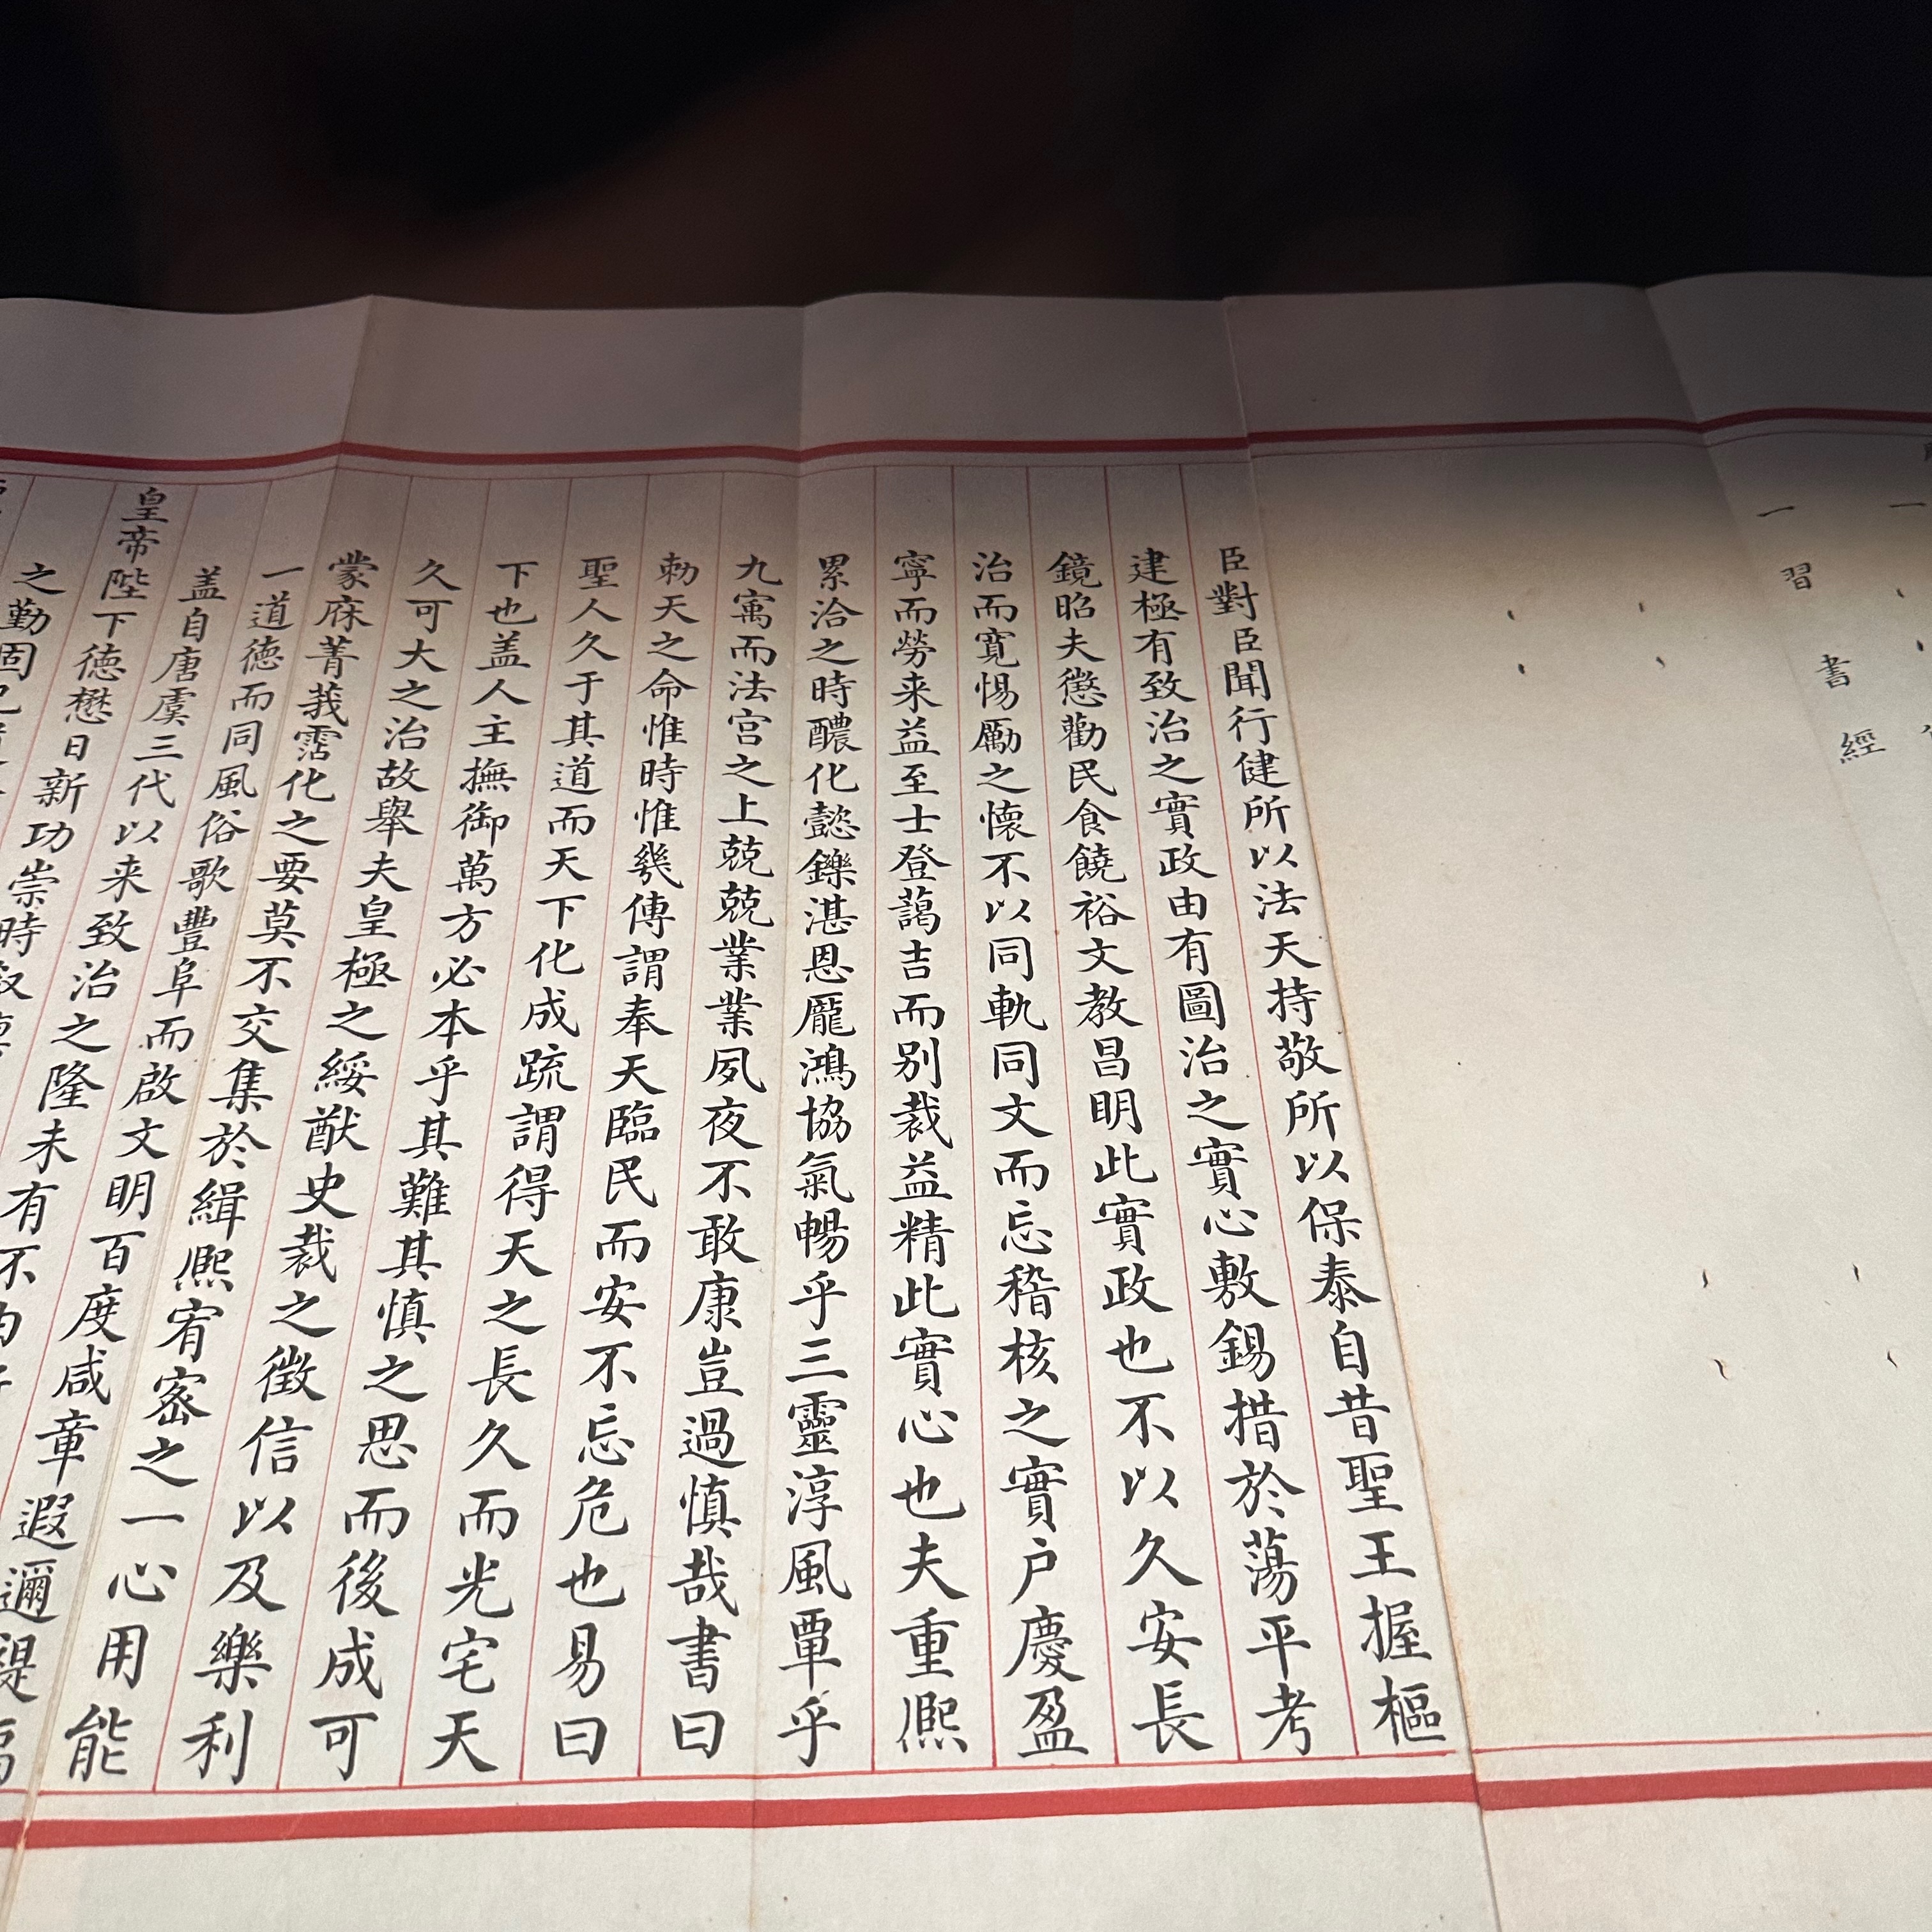 一習書經
臣對臣聞行健所以法天持敬所以保泰自昔聖王握樞
建極有致治之實政由有圖治之實心敷錫措於蕩平考
鏡昭夫懲勸民食饒裕文教昌明此實政也不以久安長
治而寬惕厲之懷不以同軌同文而忘稽核之實戶慶盈
寧而勞来益至士登藹吉而别裁益精此實心也夫重熈
累洽之時醲化懿鑠湛恩龎鴻協氣暢乎三靈淳風覃乎
九寓而法宫之上兢兢業業夙夜不敢康豈過慎哉書曰
勅天之命惟時惟幾傳謂奉天臨民而安不忘危也易曰
聖人久于其道而天下化成疏謂得天之長久而光宅天
下也盖人主撫御萬方必本乎其難其慎之思而後成可
久可大之治故舉夫皇極之綏猷史裁之徵信以及樂利
蒙庥菁莪霑化之要莫不交集於緝熈宥宻之一心用能
一道德而同風俗歌豐阜而啟文明百度咸章遐邇禔福
盖自唐虞三代以来致治之隆未有不由
皇帝陛下德懋日新功崇時
之勤固已